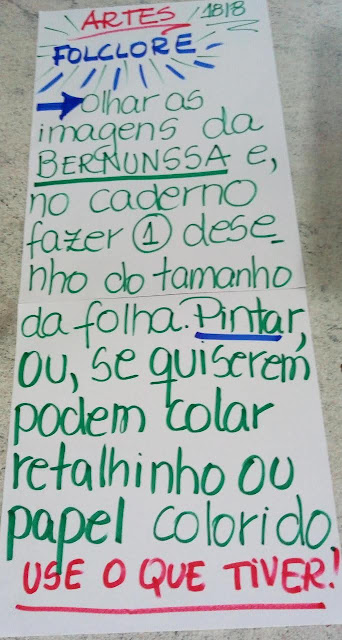 ARTES 18/8
FOLCLORE
Olhar as
imagens da
BERNUNSSA e,
no caderno
fazer 1 dese_
nho do tamanho
da folha. Pintar,
ou, se quiserem
podem colar
retalhinho ou
papel colorido.
USE O QUE TIVER!